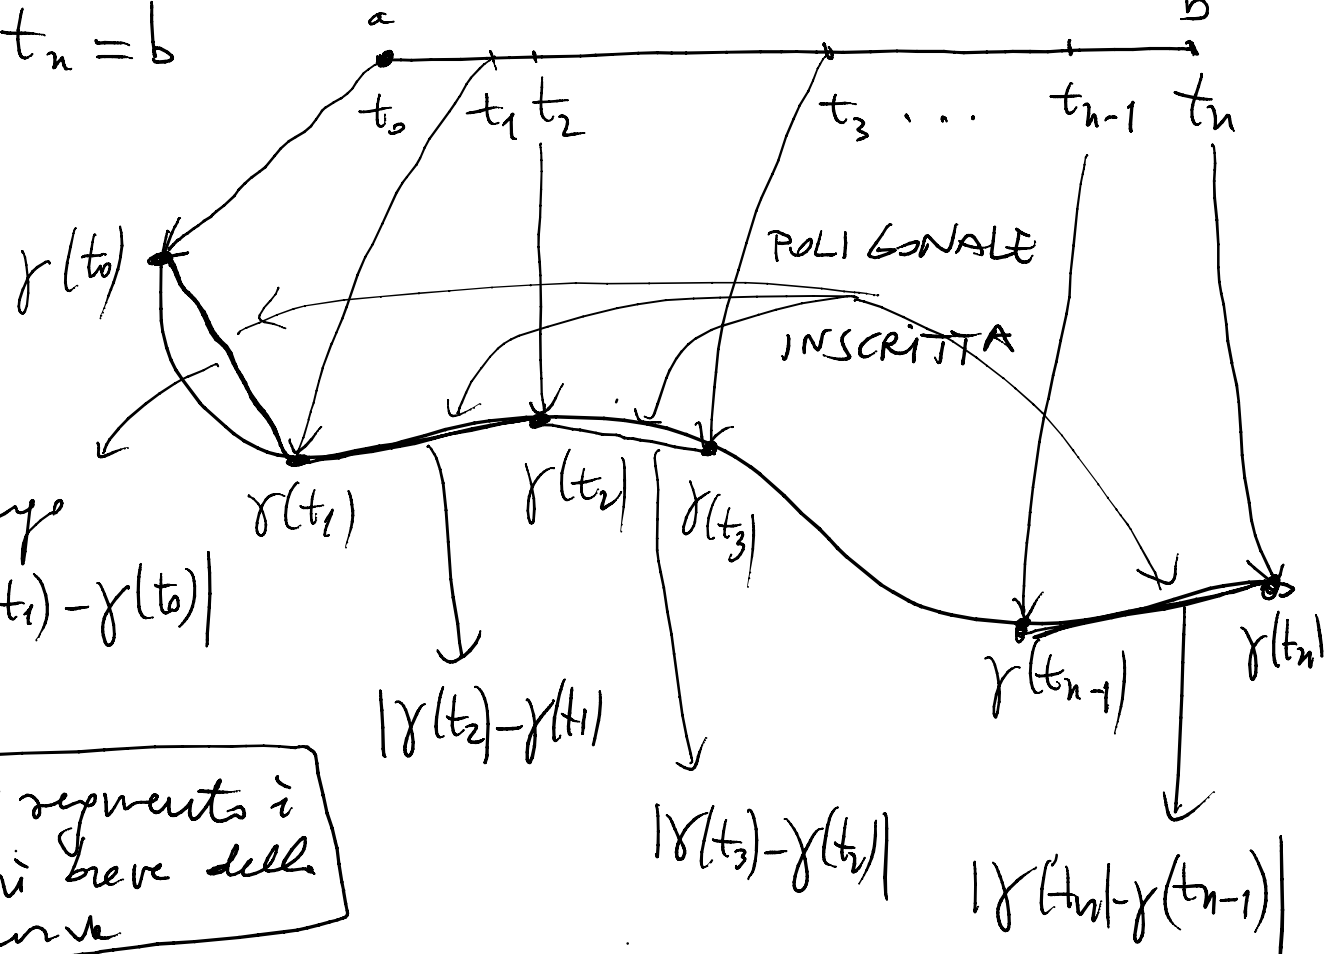 a
b
t_n = b
t_0
t_1
t_2
t_3 ....
t_{n-1}
t_n
γ(t_0)
POLIGONALE
INSCRITTA
γ(t_1)
γ(t_2)
γ(t_3)
t_1) - γ(t_0)|
γ(t_{n-1})
γ(t_n)
|γ(t_2) - γ(t_1)|
|γ(t_3) - γ(t_2)|
|γ(t_n) - γ(t_{n-1})|
segmento è
breve della